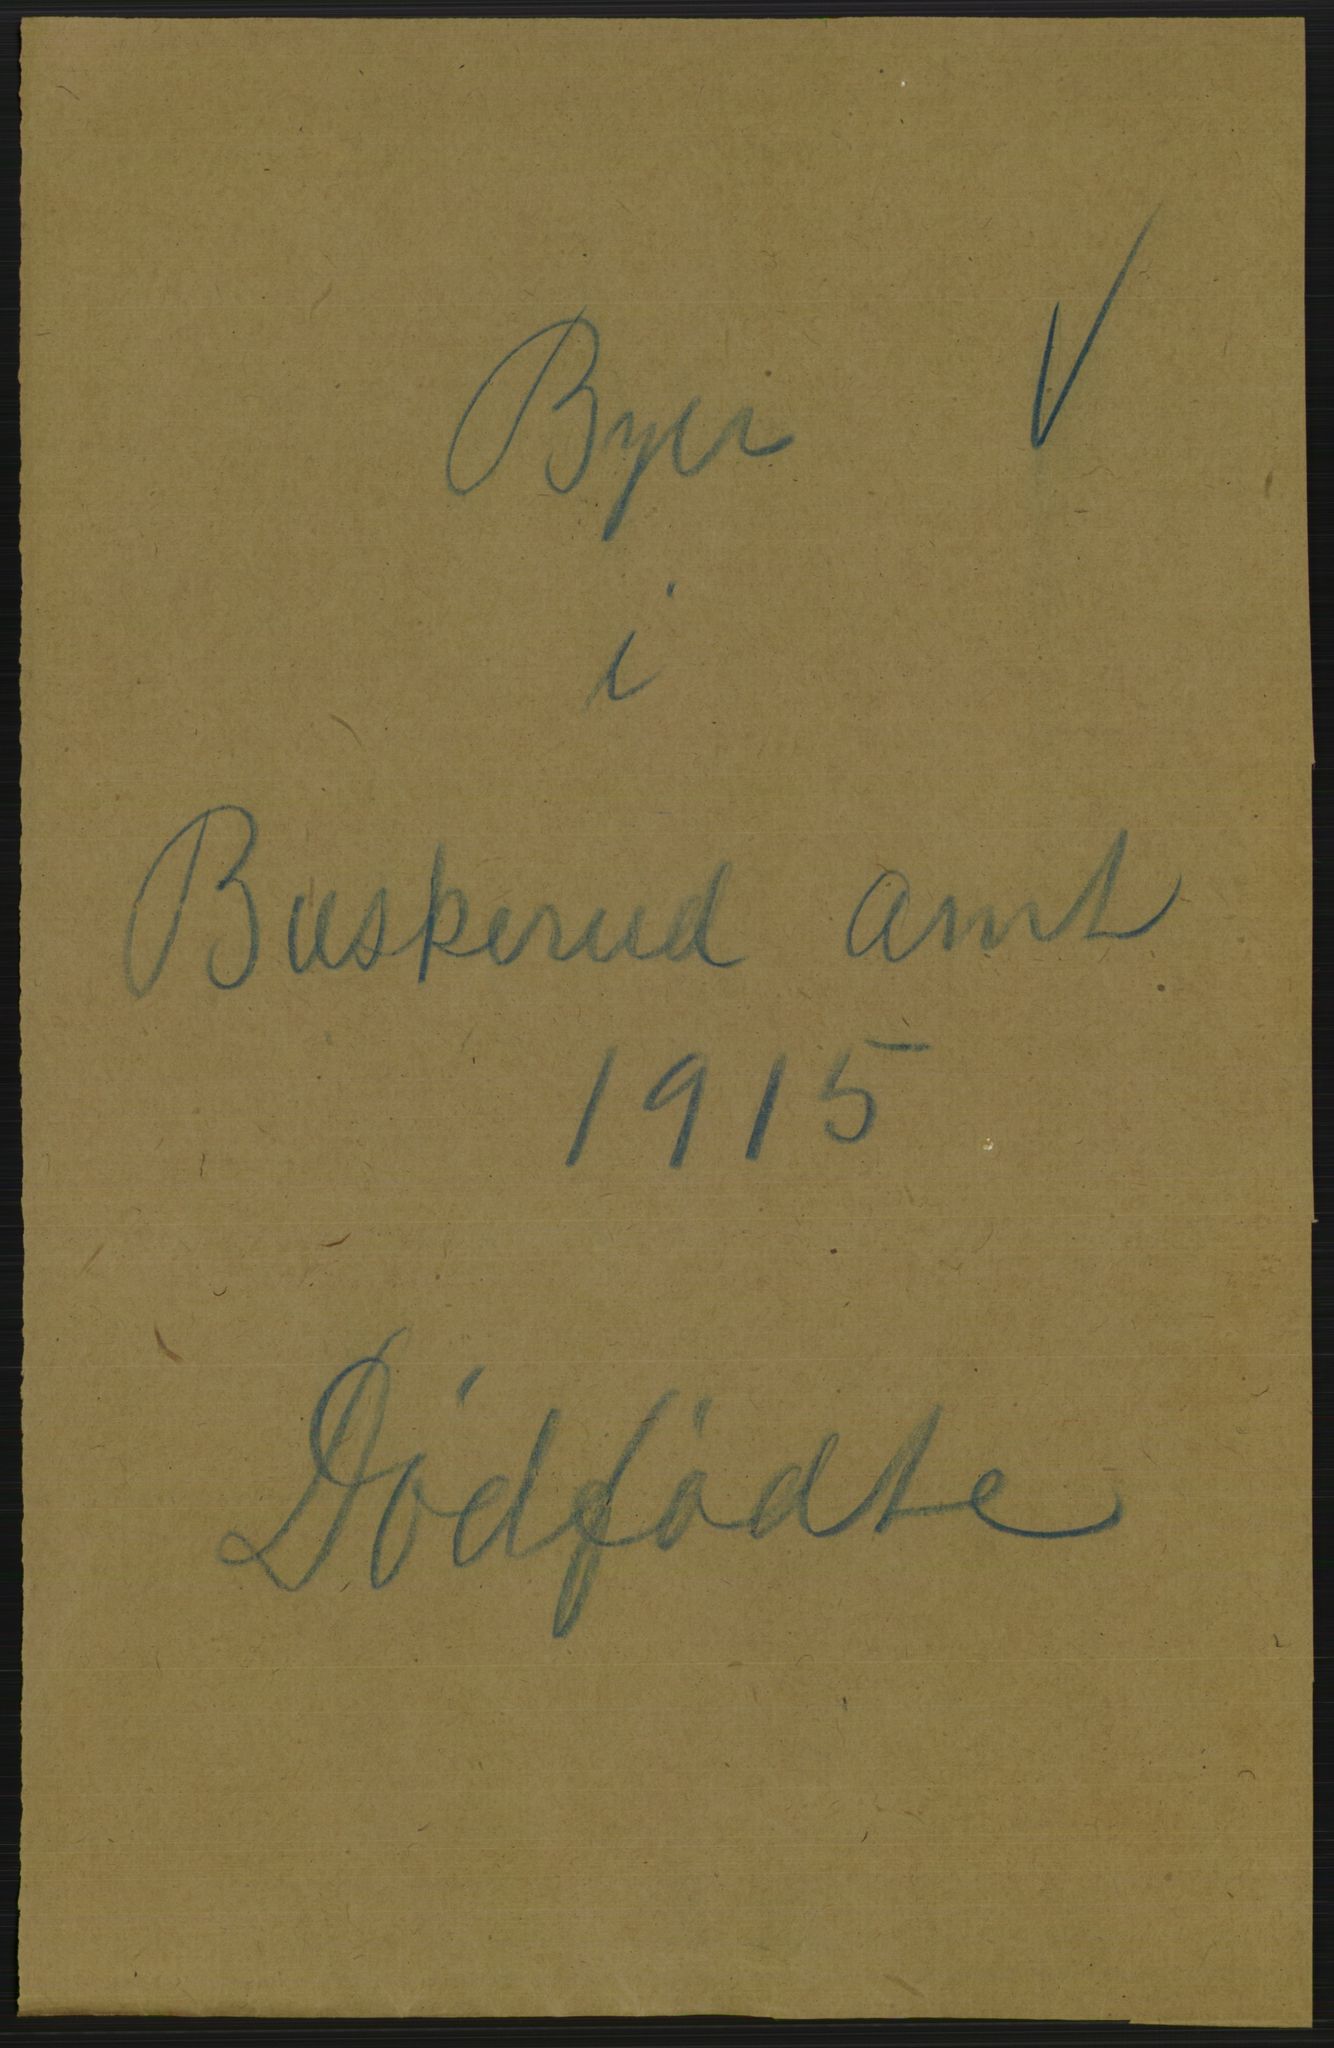 Byer ✓
i
Buskerud amt
1915
Dödfödte